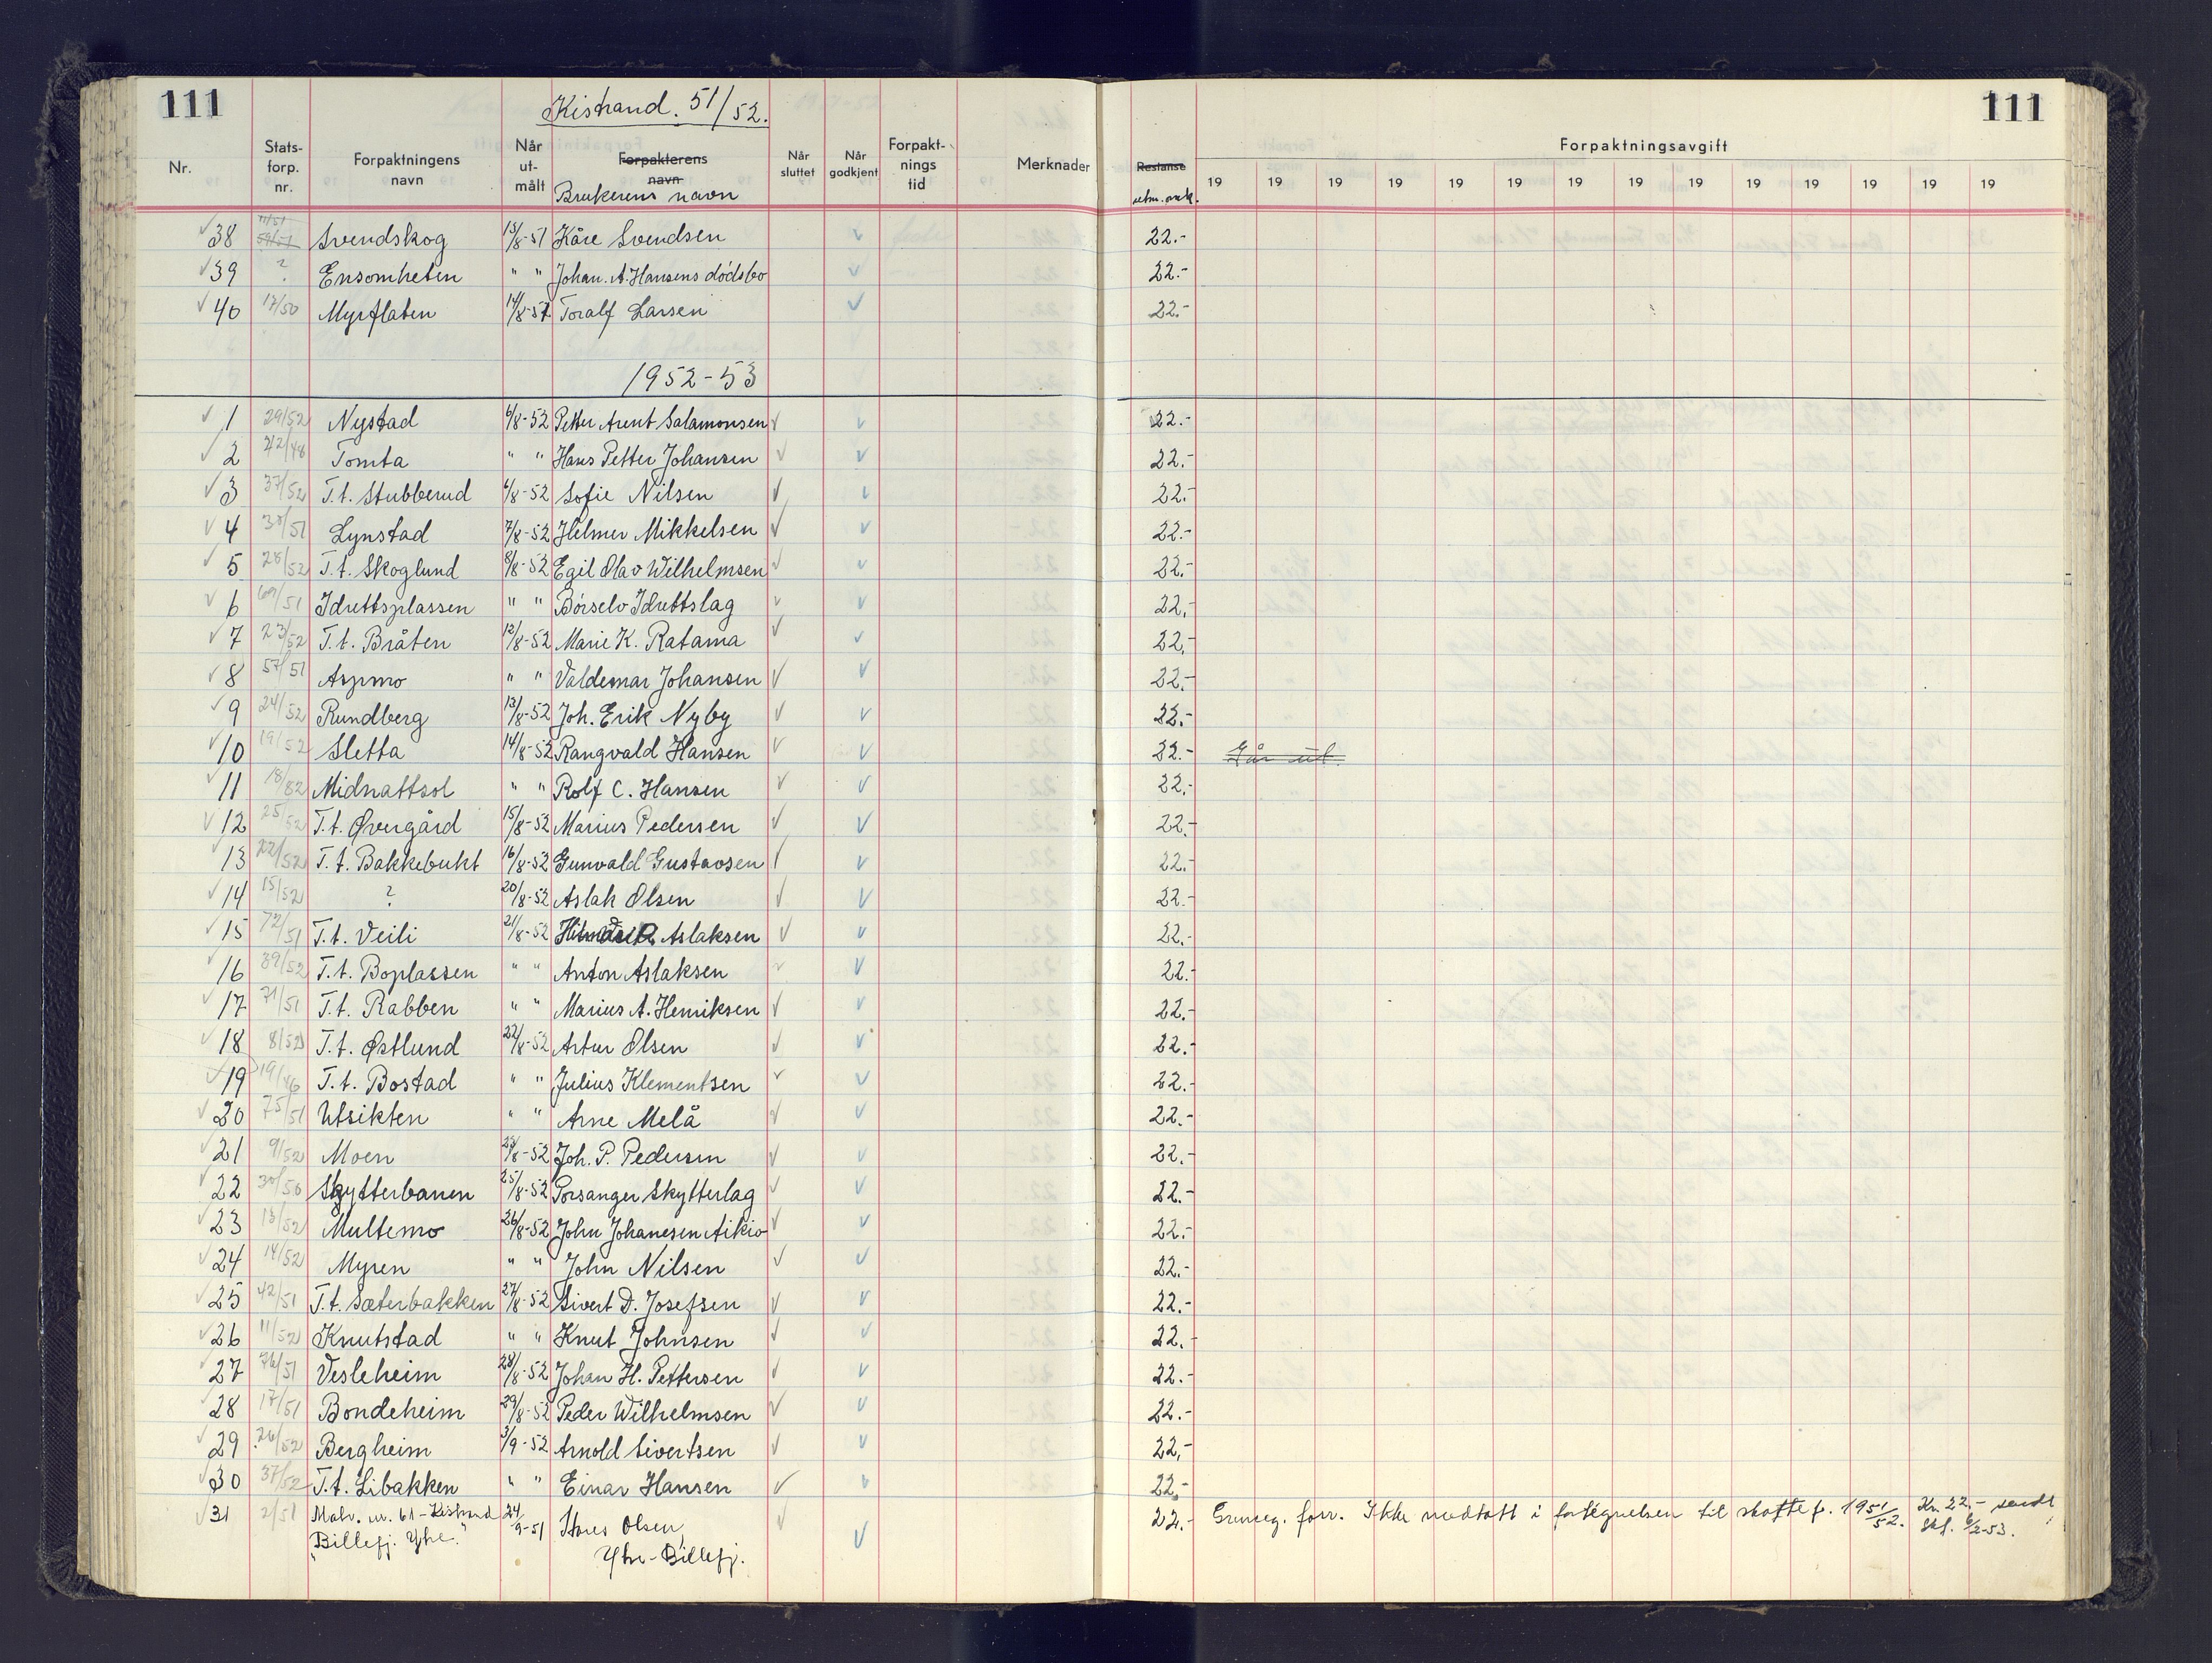 111
Kistrand. 51/52.
111
Nr.
Stats-forp. nr.
Forpaktningens navn
Når ut-målt
Forpakterens navn
Brukerens navn
Når sluttet
Når godkjent
Forpakt-nings tid
Merknader
Restanse
Forpaktningsavgift
19 19 19 19 19 19 19 19 19 19 19 19 19 19
38 11/51 Svendskog 13/8-51 Kåre Svendsen 22.-
39 ? Ensomheten " " Johan. A. Hansens dödsbo 22.-
40 17/50 Myrflaten 14/8-51 Toralf Larsen 22.-
1952-53
1 29/52 Nystad 6/8-52 Petter Arent Salamonsen 22.-
2 72/48 Tomta " " Hans Petter Johansen 22.-
3 37/52 T.t. Stubberud 6/8-52 Sofie Nilsen 22.-
4 38/51 Lynstad 7/8-52 Helmer Mikkelsen 22.-
5 28/52 T.t. Skoglund 8/8-52 Egil Olav Wilhelmsen 22.-
6 69/51 Idrettsplassen " " Börselv Idrettslag 22,-
7 23/52 T.t. Bråten 12/8-52 Marie K. Ratama 22,-
8 57/51 Aspmo " " Valdemar Johansen 22.-
9 24/52 Rundberg 13/8-52 Joh. Erik Nyby 22.-
10 19/52 Sletta 14/8-52 Rangvald Hansen 22.- Går ut.
11 18/52 Midnattsol " " Rolf C. Hansen 22,-
12 25/52 T.t. Øvergård 15/8-52 Marius Pedersen 22.-
13 22/52 T.t. Bakkebukt 16/8-52 Gunvald Gustavsen 22.-
14 15/52 ? 20/8-52 Aslak Olsen 22.-
15 72/51 T.t. Veili 21/8-52 Aslaksen 22.-
16 39/52 T.t. Boplassen " " Anton Aslaksen 22.-
17 71/51 T.t. Rabben " " Marius A. Henriksen 22.-
18 8/52 T.t. Østlund 22/8-52 Artur Olsen 22.-
19 19/46 T.t. Bostad " " Julius Klementsen 22.-
20 75/51 Utsikten " " Arne Melå 22.-
21 9/52 Moen 23/8-52 Joh. P. Pedersen 22.-
22 30/50 Skytterbanen 25/8-52 Porsanger Skytterlag 22.-
23 13/52 Multemo 26/8-52 John Johanesen Aikio 22.-
24 14/52 Myren " " John Nilsen 22.-
25 42/51 T.t. Sæterbakken 27/8-52 Sivert D. Josefsen 22.-
26 11/52 Knutstad " " Knut Johnsen 22.-
27 76/51 Vesleheim 28/8-52 Johan H. Pettersen 22.-
28 17/51 Bondeheim 29/8-52 Peder Wilhelmsen 22.-
29 26/52 Bergheim 3/9-52 Arnold Sivertsen 22,-
30 37/52 T.t. Libakken " " Einar Hansen 22,-
31 2/51 Malr. nr. 61 - Kistrand 24/9-51 Hans Olsen, 22.- forr. Ikke medtatt i fortegnelsen til 1951/52. Kr. 22.- sendt
"Billefj. Ytre." Ytre-Billefj. 6/2-53.